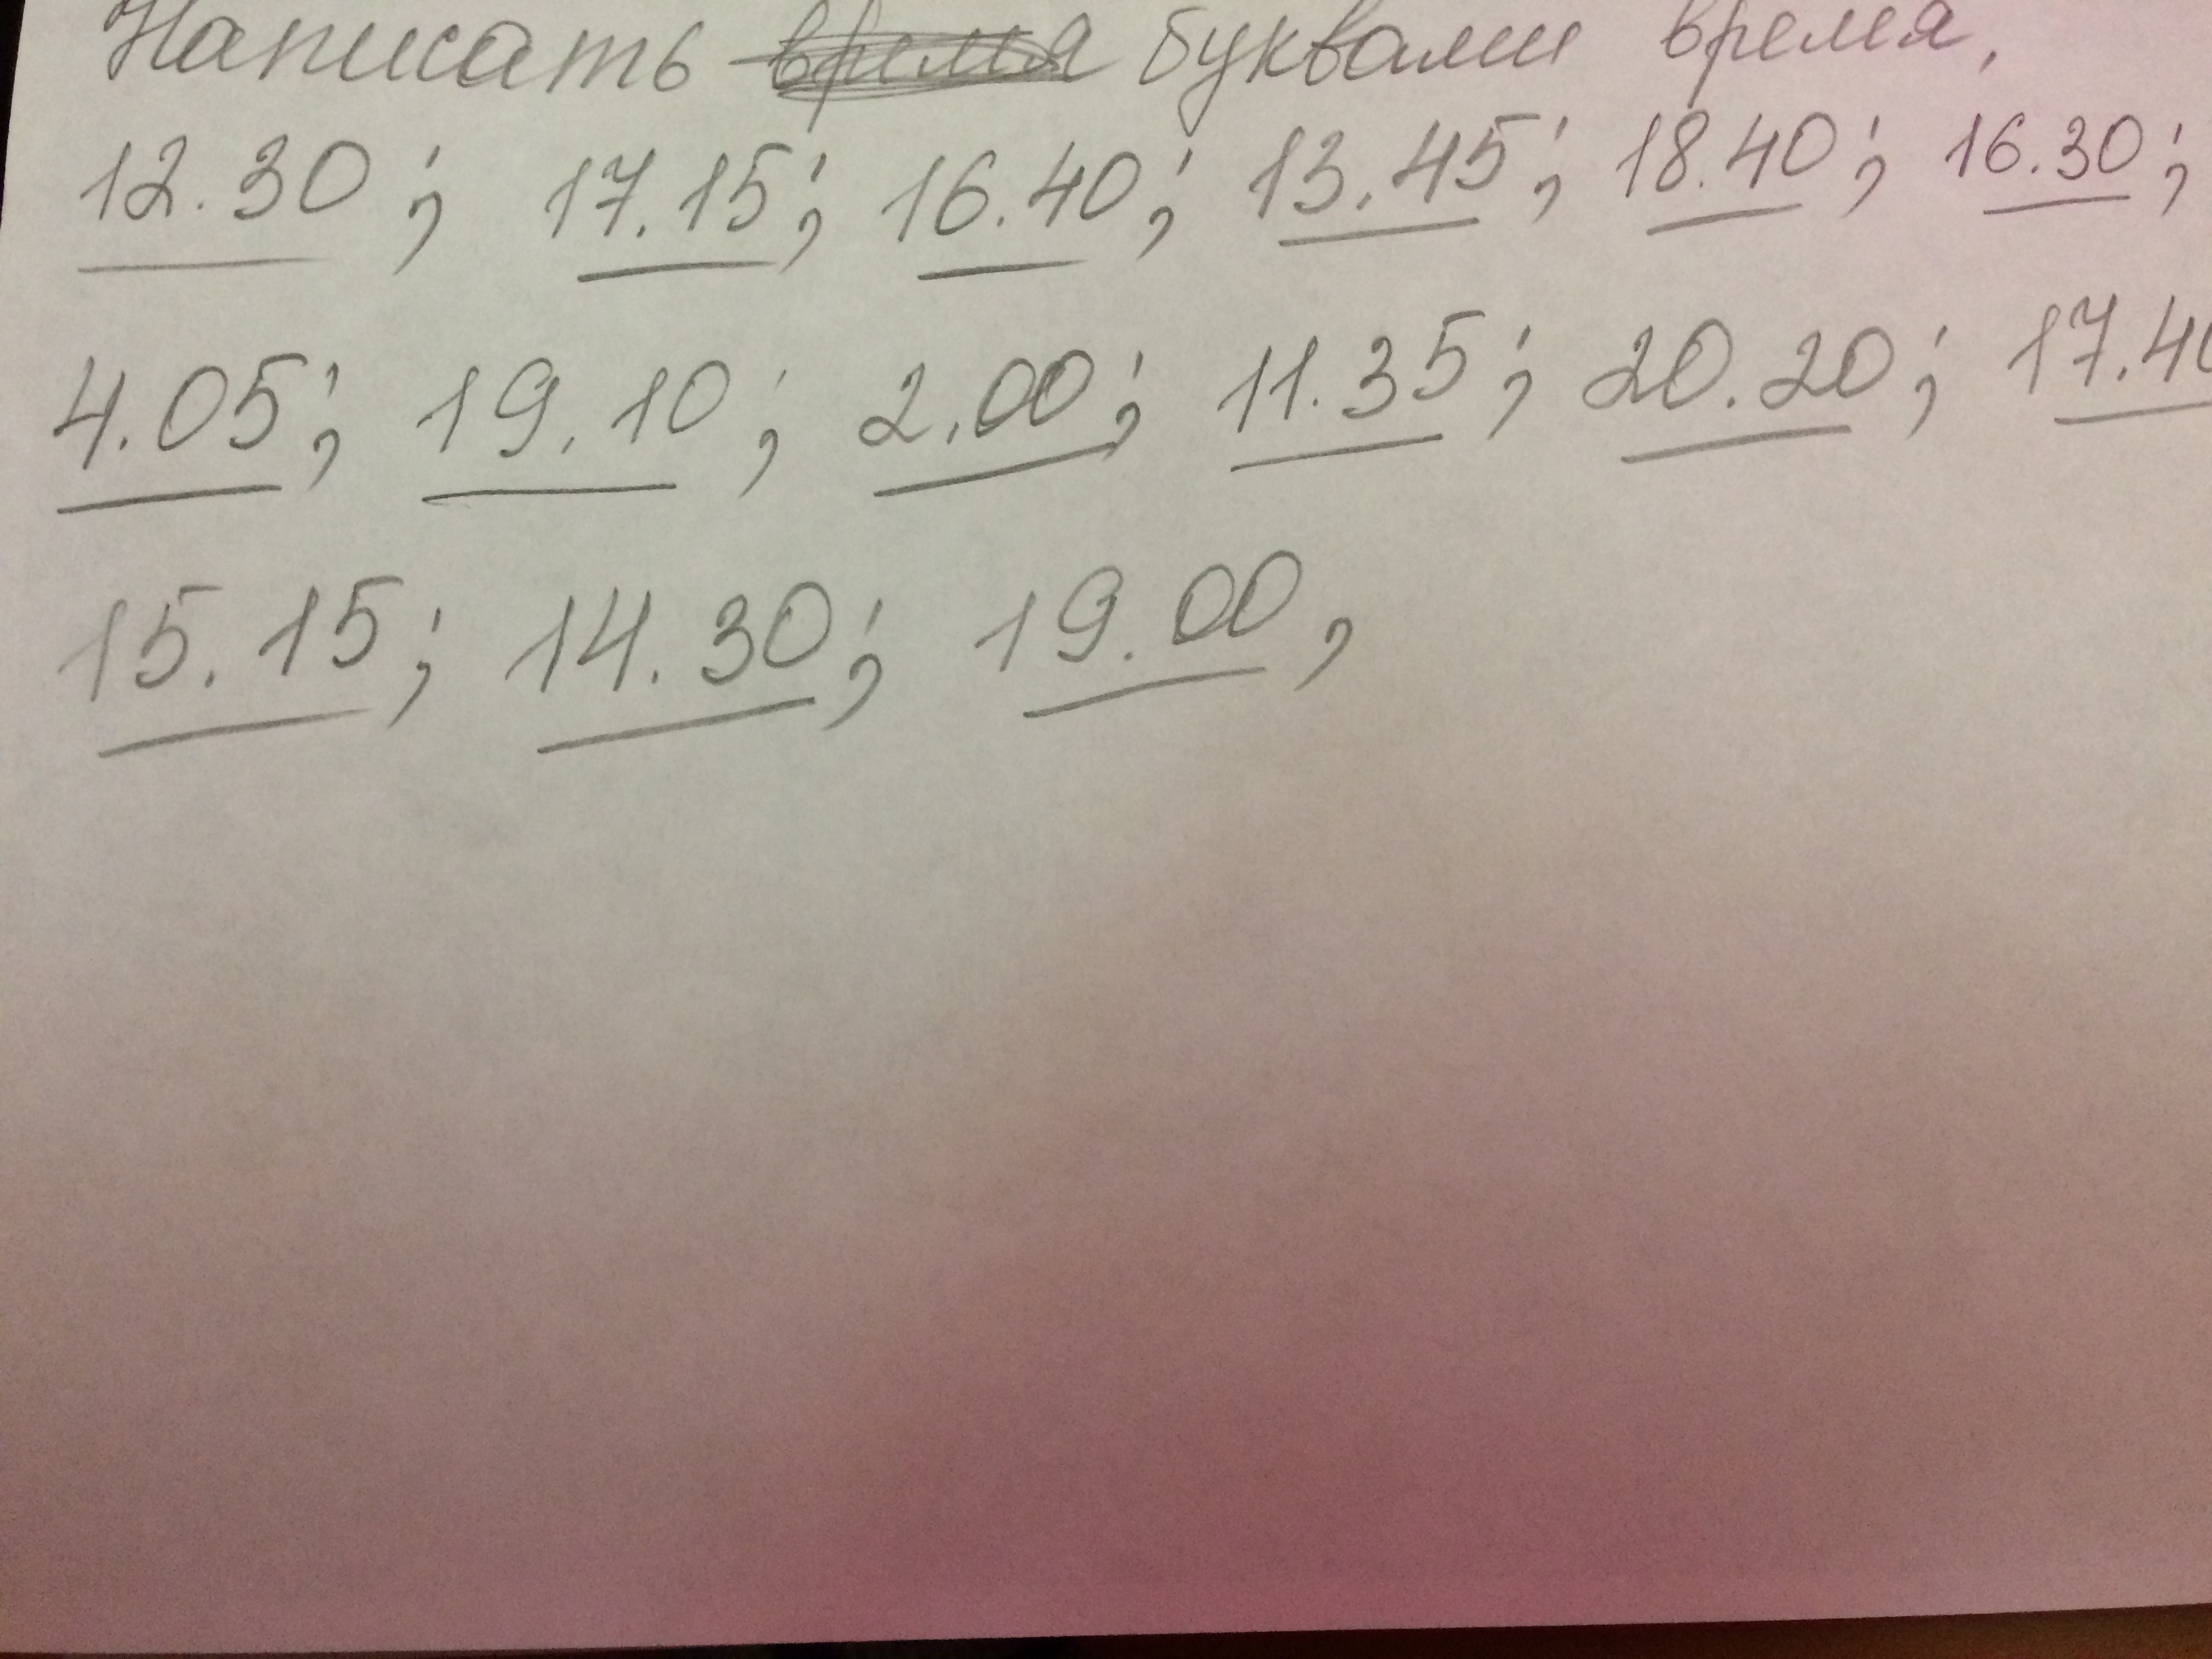 Написать буквами время,
12.30; 17.15; 16.40; 13.45; 18.40; 16.30;
4.05; 19.10; 2.00; 11.35; 20.20; 17.40
15.15; 14.30; 19.00,